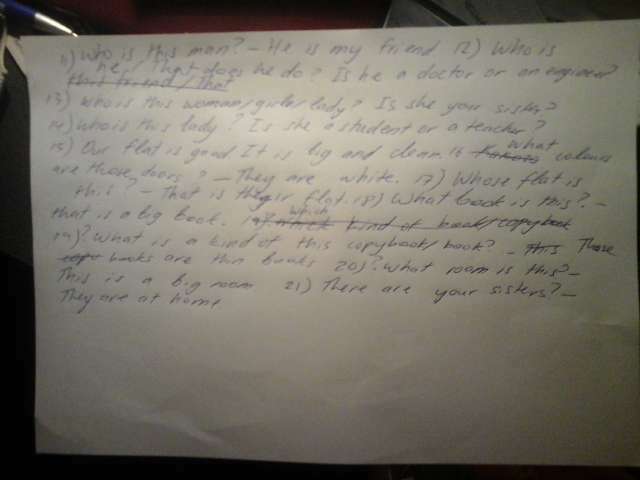 11) Who is this man? - He is my friend 12) Who is
he / That does he do? Is he a doctor or an engineer?
this friend / That
13) Who is this woman/girls/lady? Is she your sister?
14) Who is this lady? Is she a student or a teacher?
15) Our flat is good. It is big and clean. 16 What colours
are those doors? - They are white. 17) Whose flat is
this? - That is their flat. 18) What book is this? -
that is a big book. 19)? which kind of book/copybook
19)? What is a kind of this copybook/book? - This Those
copy books are thin books 20)? What room is this? -
This is a big room 21) There are your sisters? -
They are at home